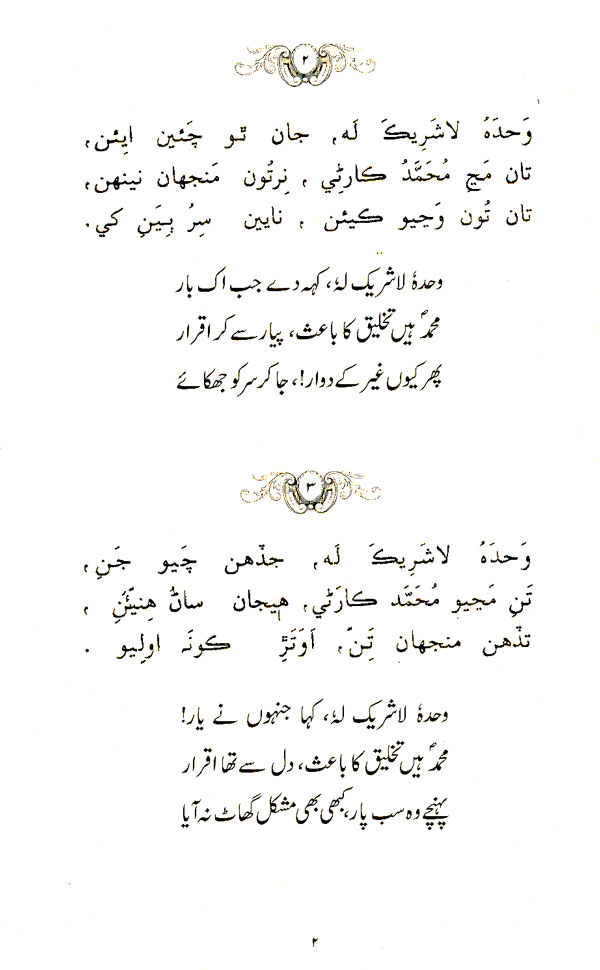 ۲
وَحدَهٗ لاشَرِيڪَ لَہ، جان ٿو چَئين ايئن،
تان مَڃ مُحَمَّدُ ڪارڻِي، نِرتُون مَنجهان نينهن،
تان تُون وَڃيو ڪيئن، نايين سِرُ ٻِيَنِ کي.
وحدہٗ لاشریک لہٗ، کہہ دے جب اک بار
محمدؐ ہیں تخلیق کا باعث، پیار سے کر اقرار
پھر کیوں غیر کے دوار!، جا کر سر کو جھکائے
۳
وَحدَهٗ لاشَرِيڪَ لَہ، جڏهن چَيو جَنِ،
تَنِ مَڃيو مُحَمَّد ڪارَڻِي، هيجان ساڻُ هِنيَّنِ،
تڏهن منجهان تَنّ، اَوَتَڙِ ڪونَہ اولِيو.
وحدہٗ لاشریک لہٗ، کہا جنہوں نے یار!
محمدؐ ہیں تخلیق کا باعث، دل سے تھا اقرار
پہنچے وہ سب پار، کبھی بھی مشکل گھاٹ نہ آیا
۲